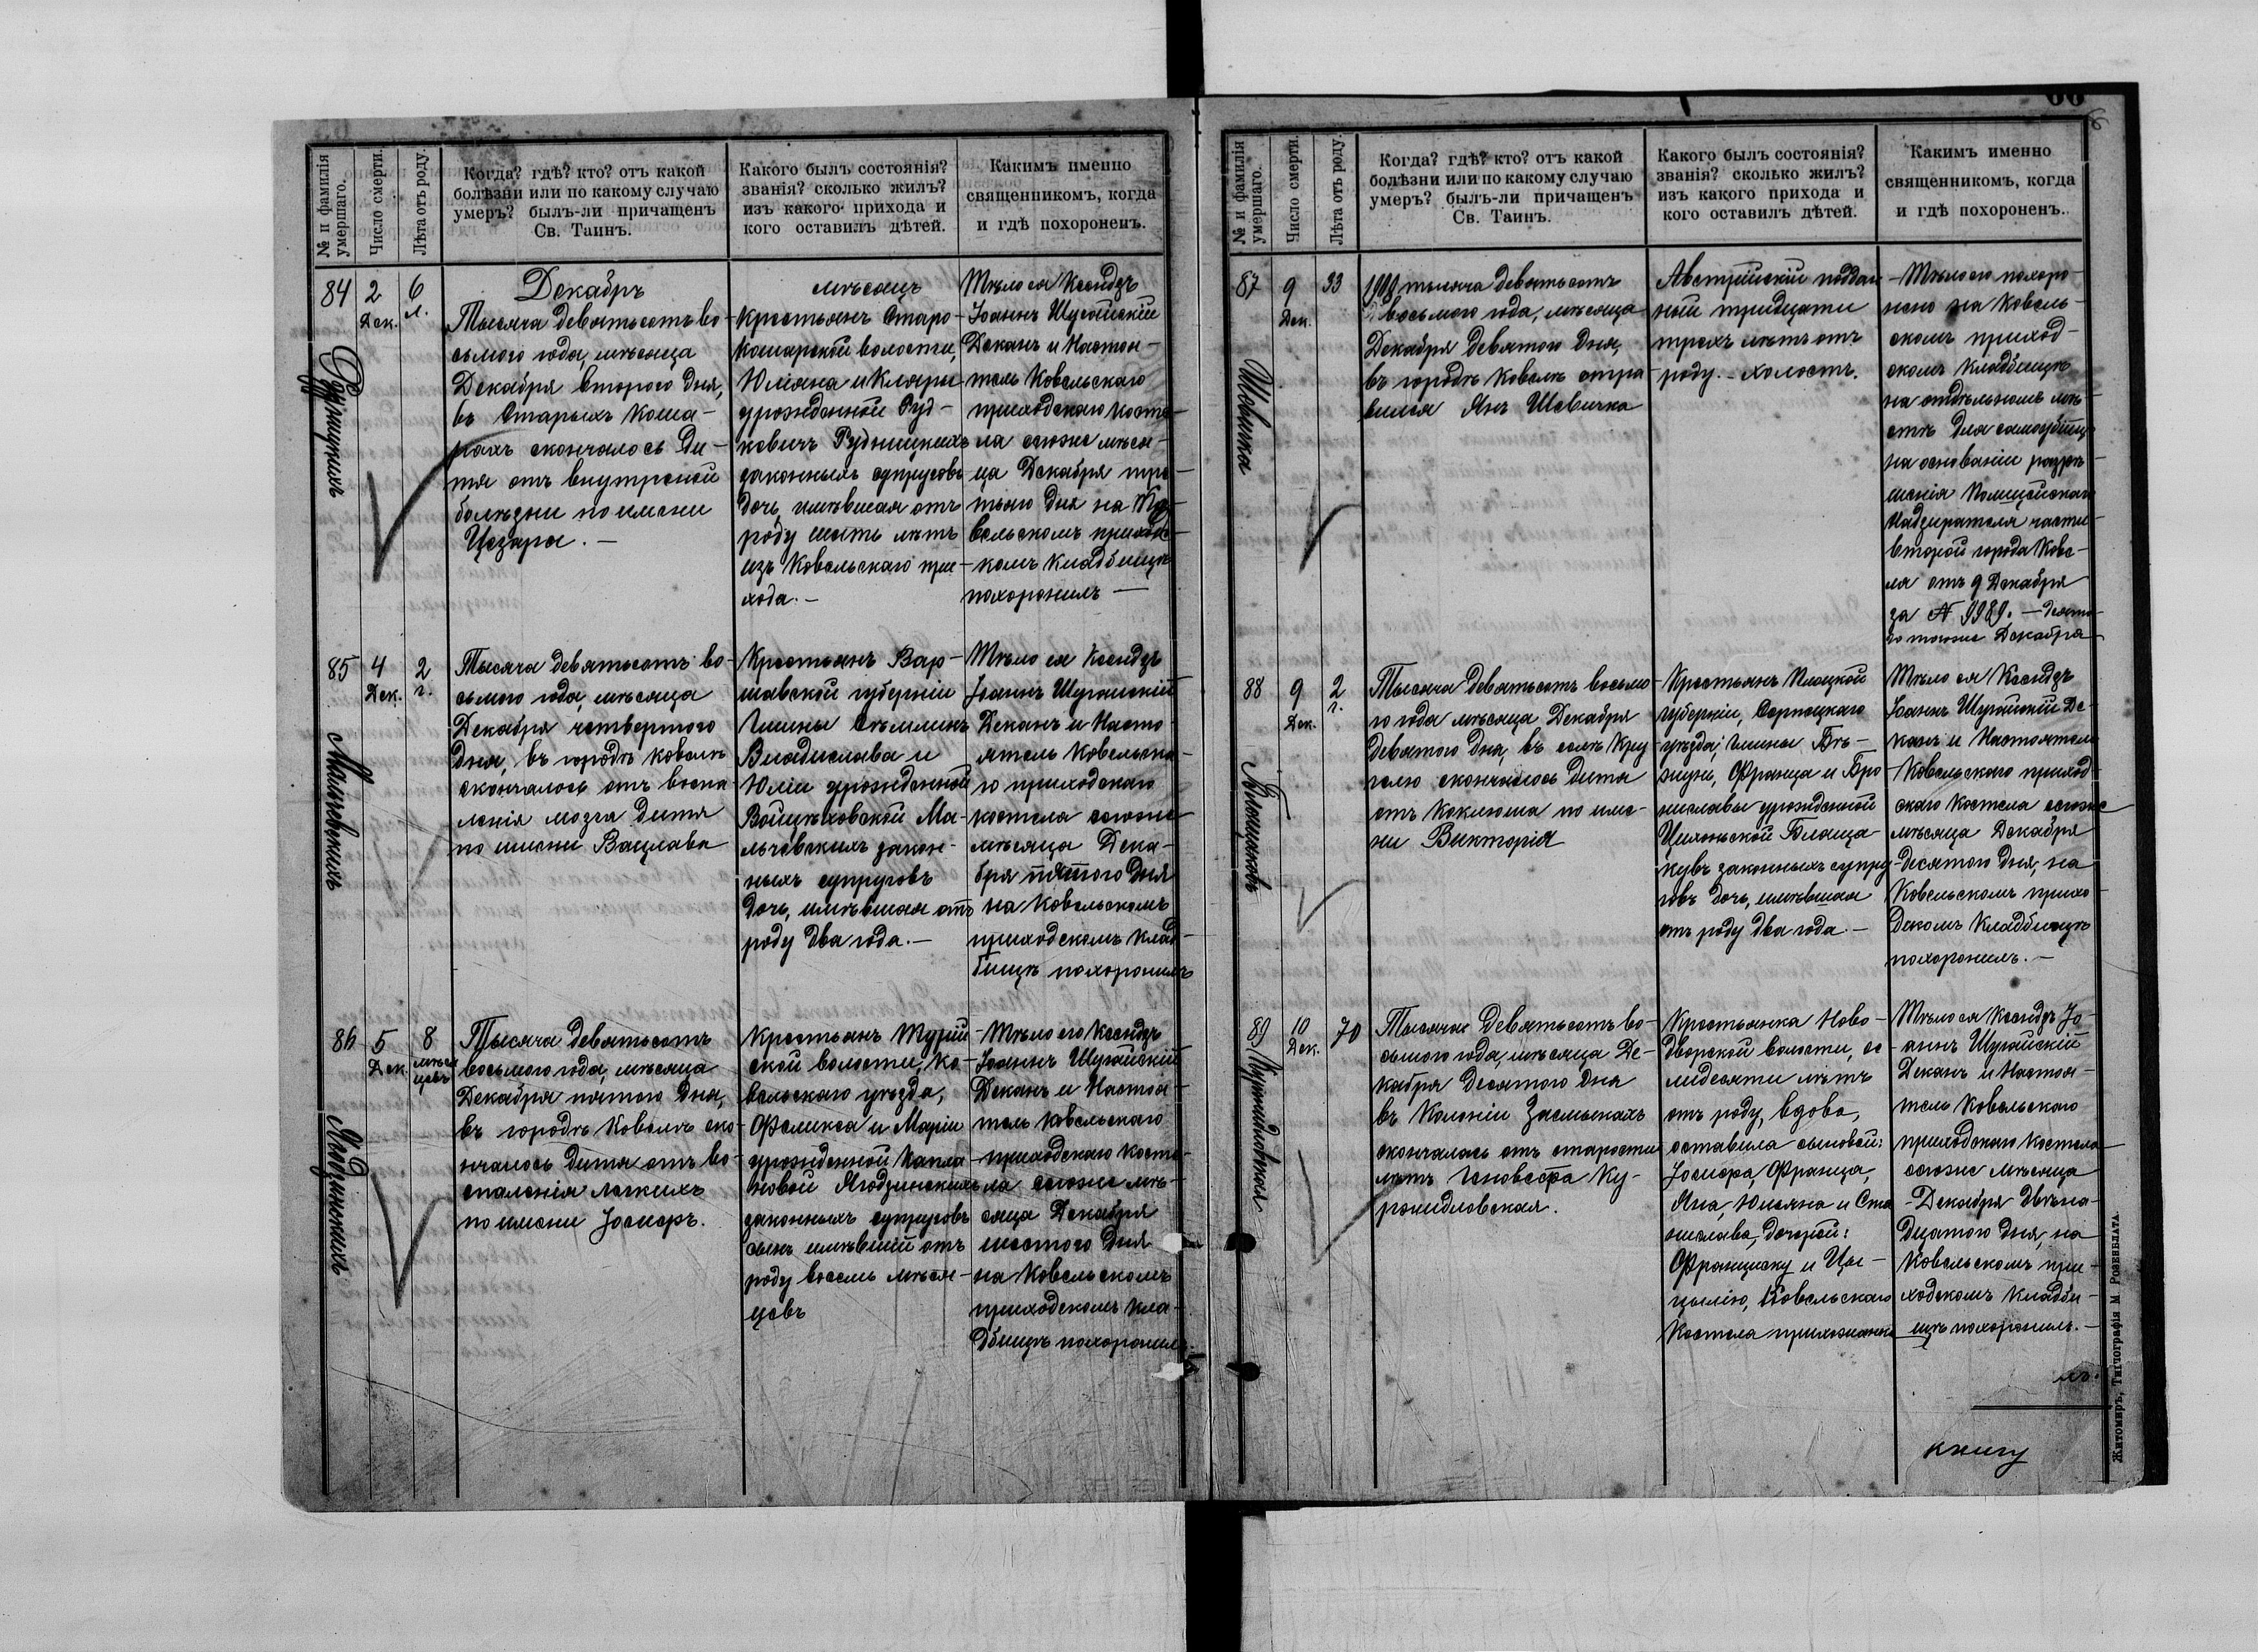 № и фамилія умершаго.
Число смерти.
Лѣта отъ роду.
Когда? гдѣ? кто? отъ какой
болѣзни или по какому случаю
умеръ? былъ-ли причащенъ
Св. Таинъ.
Какого былъ состоянія?
званія? сколько жилъ?
изъ какого прихода и
кого оставилъ дѣтей.
Какимъ именно
священникомъ, когда
и гдѣ похороненъ.
84
Рудницкихъ
2
Дек.
6
л.
Декабрь
Тысяча девятьсотъ во-
сьмого года, мѣсяца
Декабря второго дня,
въ Старыхъ Коша-
рахъ скончалось Ди-
тя отъ внутреной
болѣзни по имени
Цезара. —
мѣсяцъ
Крестьянъ Старо-
кошарской волости,
Юліяна и Кляры
урожденной Руд-
кевичъ Рудницкихъ
законныхъ супруговъ
дочь, имѣвшая отъ
роду шесть лѣтъ
изъ Ковельскаго при-
хода. —
Тѣло ея Ксендзъ
Іоаннъ Шугайскій
Деканъ и Настоя-
тель Ковельскаго
приходскаго косте-
ла сегоже мѣся-
ца Декабря тре-
тьяго дня на Ко-
вельскомъ приход-
комъ кладбищѣ
похоронилъ —
85
Мальчевскихъ
4
Дек.
2
г.
Тысяча девятьсотъ во-
сьмого года, мѣсяца
Декабря четвертого
дня, въ городѣ Ковелѣ
скончалось отъ воспа-
ленія мозга дитя
по имени Вацлава
Крестьянъ Вар-
шавской губерніи
Гмины
Владислава и
Юліи урожденной
Войцѣховской Ма-
льчевскихъ закон-
ныхъ супруговъ
дочь, имѣвшая отъ
роду два года. —
Тѣло ея Ксендзъ
Іоаннъ Шугайскій
Деканъ и Насто-
ятель Ковельска-
го приходскаго
костела сегоже
мѣсяца Дека-
бря пятого дня
на Ковельскомъ
приходскомъ клад-
бищѣ похоронилъ
86
Ягодзинскихъ
5
Дек.
8
мѣся
цевъ
Тысяча девятьсотъ
восьмого года, мѣсяца
Декабря пятого дня,
въ городѣ Ковелѣ ско-
нчалось дитя отъ во-
спаленія легкихъ
по имени Іосифъ.
Крестьянъ Турій-
ской волости, Ко-
вельскаго уѣзда,
Феликса и Маріи
урожденной Капла-
новой Ягодзинскихъ
законныхъ супруговъ
сынъ имѣвшій отъ
роду восемь мѣся-
цевъ
Тѣло его Ксендзъ
Іоаннъ Шугайскій
Деканъ и Настоя-
тель Ковельскаго
приходскаго косте-
ла сегоже мѣ-
сяца Декабря
шестого дня
на Ковельскомъ
приходскомъ кла-
дбищѣ похоронилъ.
№ и фамилія умершаго.
Число смерти.
Лѣта отъ роду.
Когда? гдѣ? кто? отъ какой
болѣзни или по какому случаю
умеръ? былъ-ли причащенъ
Св. Таинъ.
Какого былъ состоянія?
званія? сколько жилъ?
изъ какого прихода и
кого оставилъ дѣтей.
Какимъ именно
священникомъ, когда
и гдѣ похороненъ.
87
Шевичка
9
Дек.
33
1908 тысяча девятьсотъ
восьмого года, мѣсяца
Декабря девятого дня,
въ городѣ Ковелѣ отра-
вился Янъ Шевичка
Австрійскій поддан
ный тридцати
трехъ лѣтъ отъ
роду. — холостъ.
Тѣло его похоро-
нено на Ковель-
скомъ приход-
скомъ кладбищѣ
на отдѣльномъ мѣ-
стѣ для самоубійцъ
на основаніи разрѣ-
шенія Полицейскаго
Надзирателя части
второй города Кове-
ля отъ 9 Декабря
за № 9989. —
того же Декабря
88
9
Дек.
2
г.
Тысяча девятьсотъ восьмо-
го года мѣсяца Декабря
девятого дня, въ селѣ Кру-
гелю скончалось дитя
отъ коклюша по име-
ни Викторія
Крестьянъ Плоцкой
губерніи, Серпецкаго
уѣзда, гмины Бѣ-
жунь, Франца и Бро-
ниславы урожденной
законныхъ супру-
говъ дочь, имѣвшая
отъ роду два года —
Тѣло ея Ксендзъ
Іоаннъ Шугайскій Де-
канъ и Настоятель
Ковельскаго приход-
скаго костела сегоже
мѣсяца Декабря
десятого дня, на
Ковельскомъ прихо-
дскомъ кладбищѣ
похоронилъ. —
89
10
Дек.
70
Тысяча девятьсотъ во-
сьмого года, мѣсяца Де-
кабря десятого дня
въ Колоніи Засмыкахъ
скончалась отъ старости
лѣтъ Геновефа Ку-
ронидловская.
Крестьянка Ново-
дворской волости, се-
мидесяти лѣтъ
отъ роду, вдова,
оставила сыновей:
Іосифа, Франца,
Яна, Юльяна и Ста
нислава, дочерей:
Францишку и Це-
цылію, Ковельскаго
Костела прихожанка
Тѣло ея Ксендзъ Іо-
аннъ Шугайскій
Деканъ и Настоя-
тель Ковельскаго
приходскаго костела
сегоже мѣсяца
Декабря двѣна-
дцатого дня, на
Ковельскомъ при-
ходскомъ кладби-
щѣ похоронилъ. —
книгу
Житомиръ, Типографія М. Розенблата.